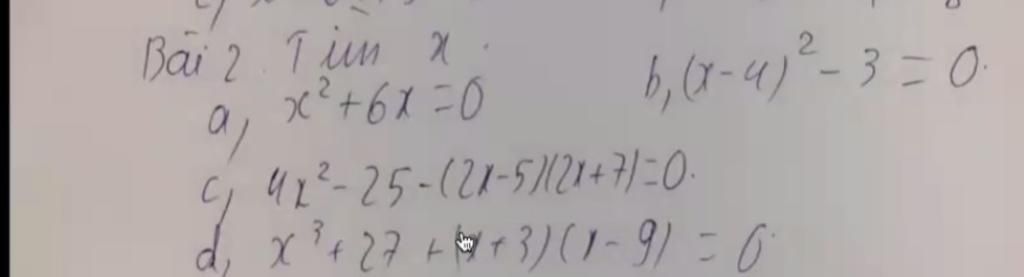 Bài 2. Tìm x.
a, x² + 6x = 0 b, (x-4)² - 3 = 0.
c, 4x² - 25 - (2x-5)(2x+7) = 0.
d, x³ + 27 + (x+3)(x-9) = 0.